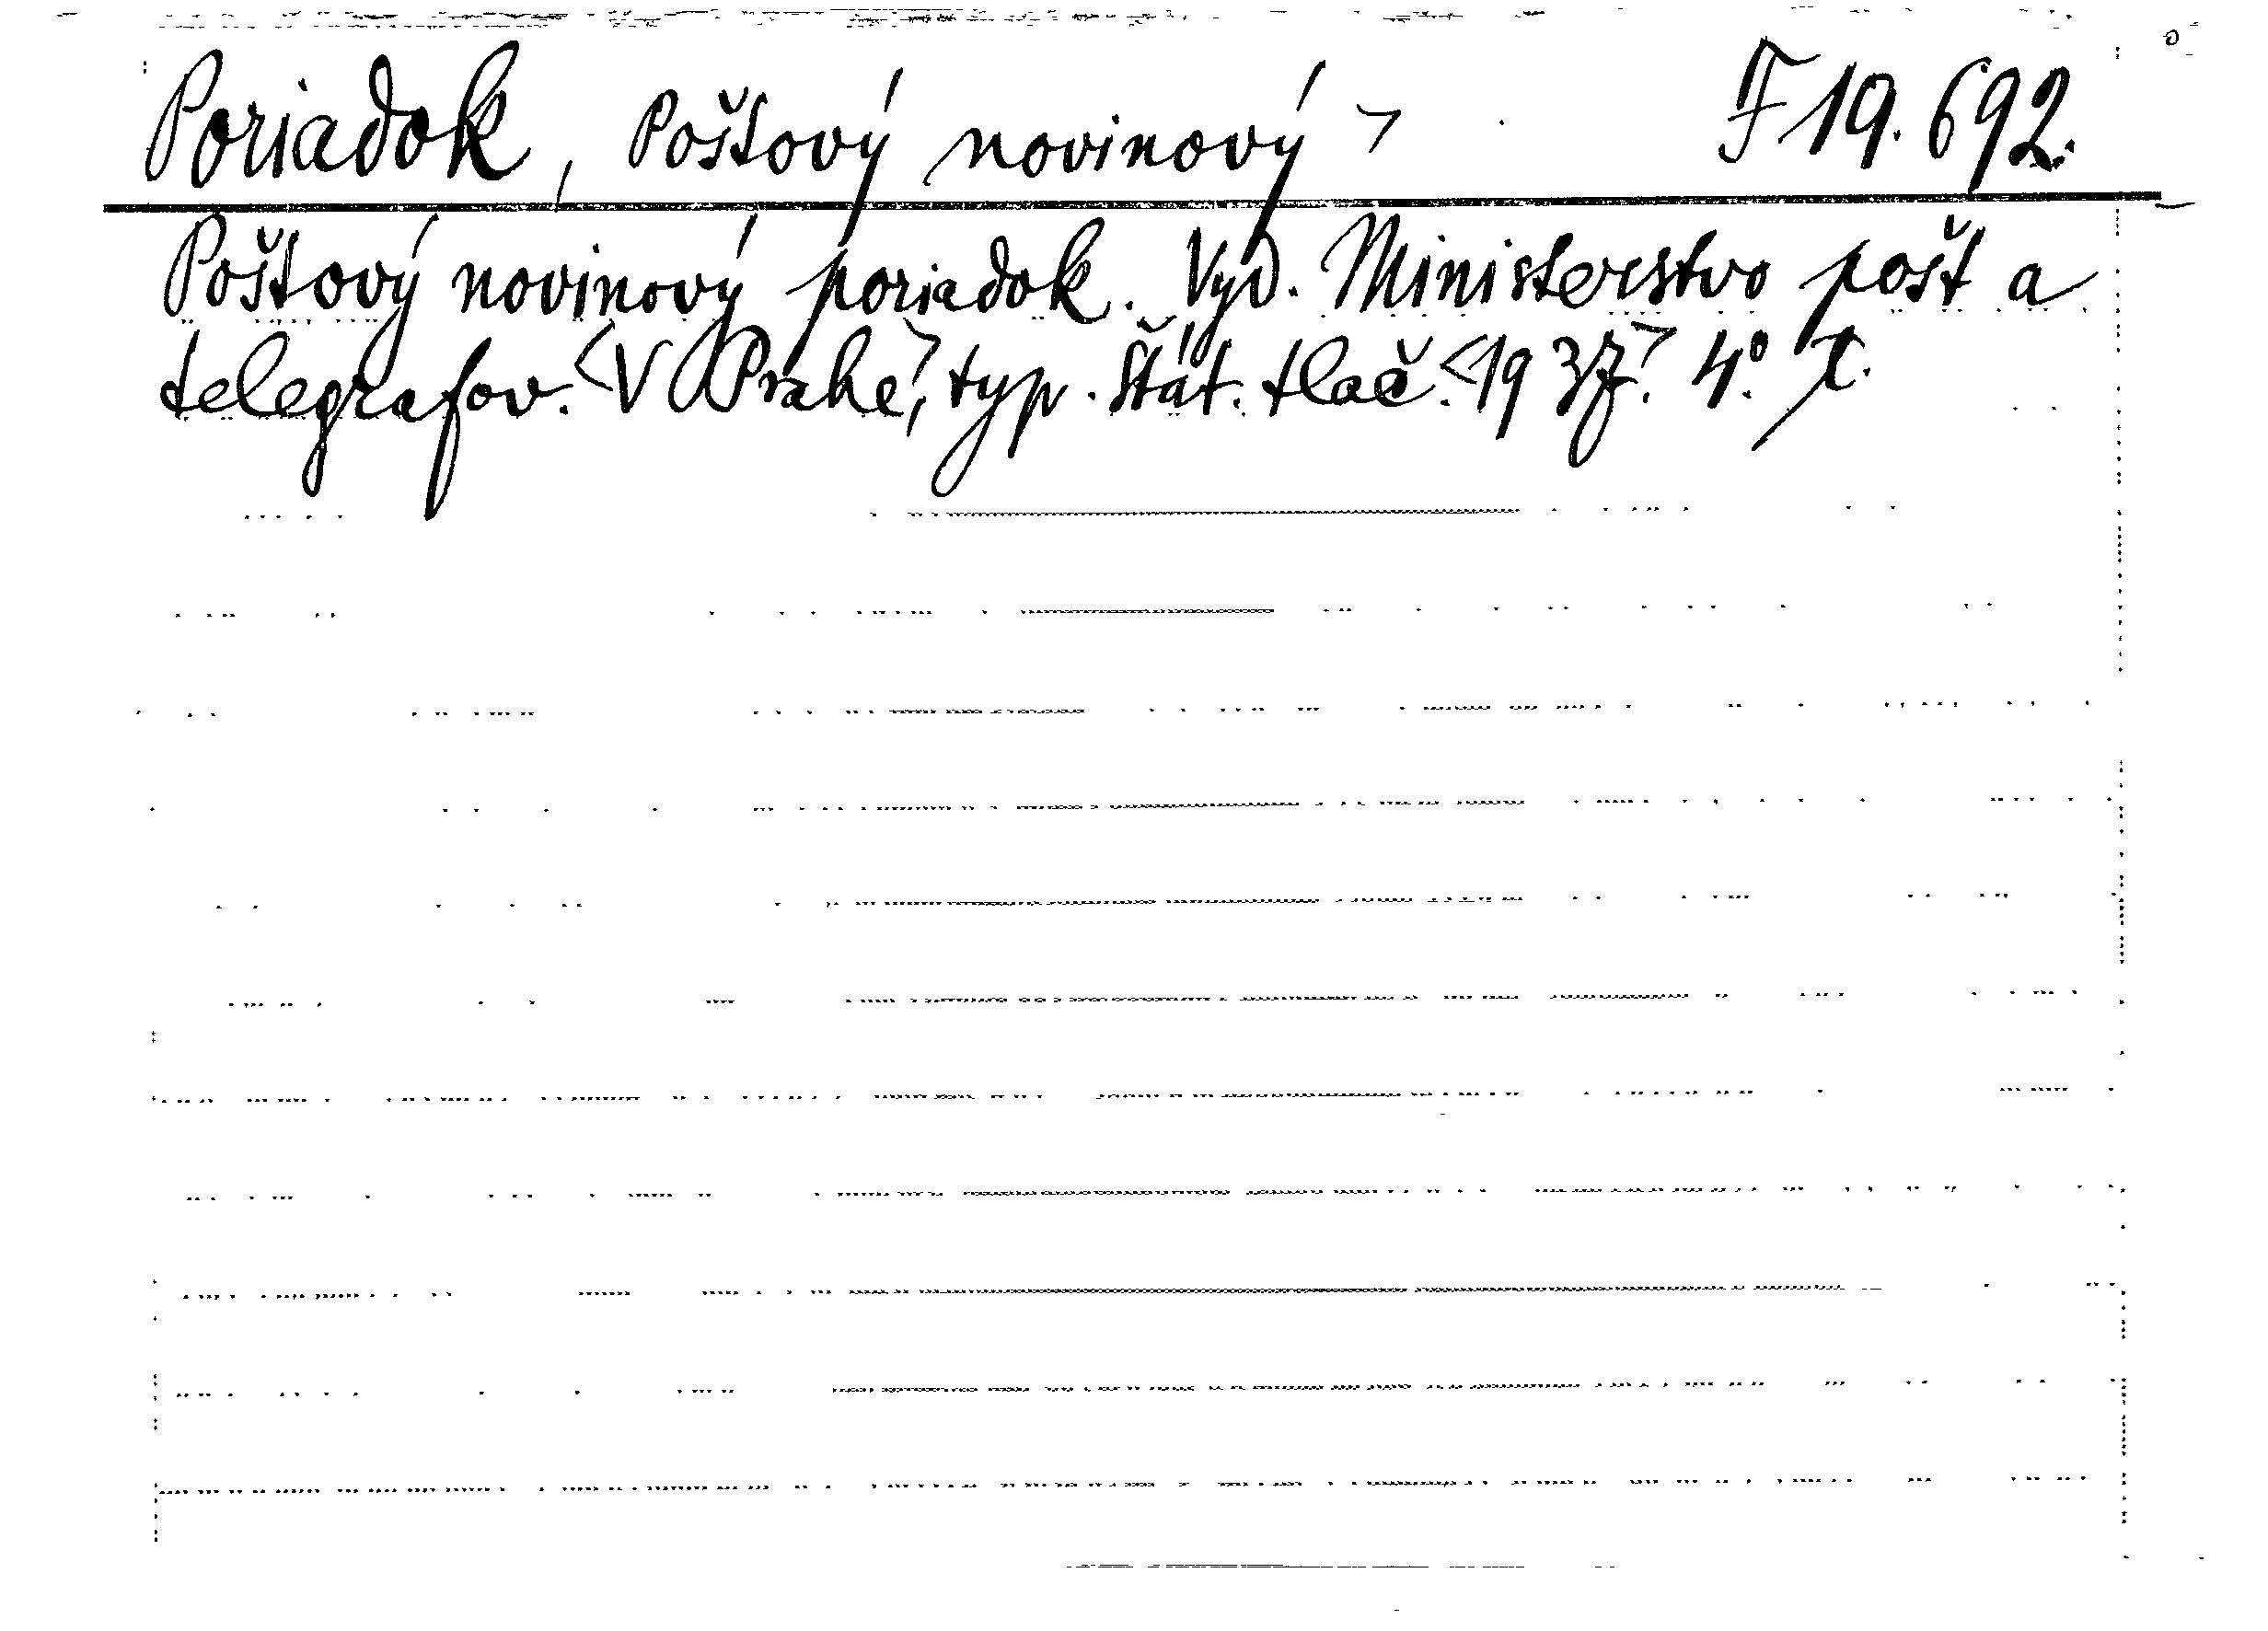 Poriadok, Poštový novinový > F 19.692.
Poštový novinový poriadok. Vyd. Ministerstvo pošt a
telegrafov. <V Prahe>, typ. Štát. tlač. <1937>. 4°.